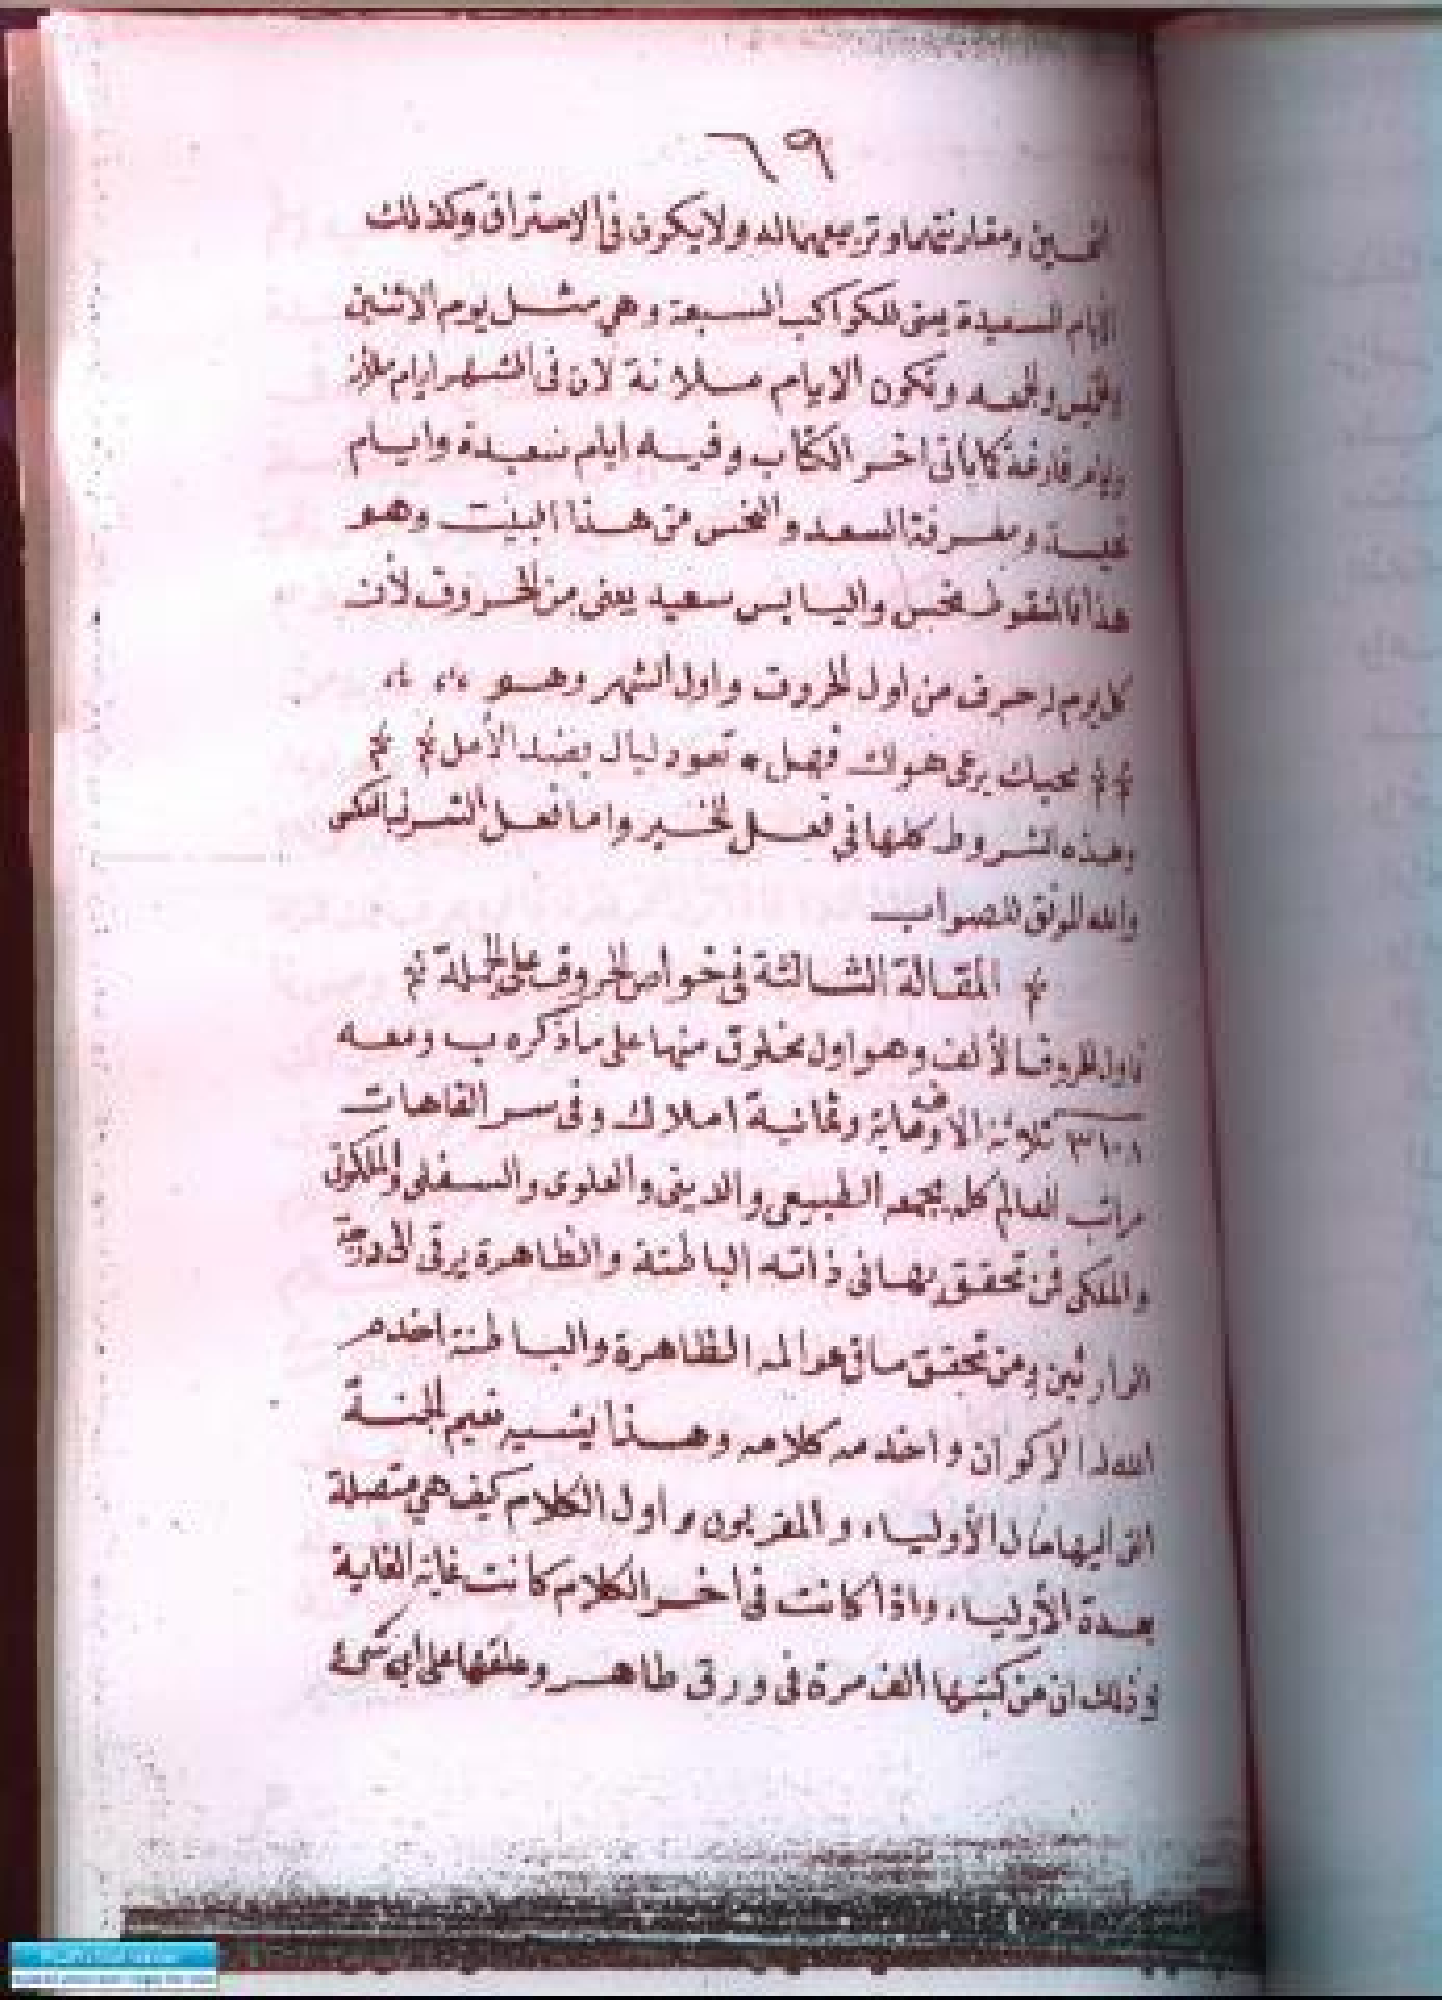 ٦٩
النحسين ومقارنتهما وتربيعهما له ولا يكون فى الاحتراق وكذلك
الايام السعيدة يعنى للكواكب السبعة وهي مثل يوم الاثنين
والخميس والجمعه وتكون الايام ملانة لان فى الشهر ايام ملانه
وايام فارغة كما ياتى اخر الكتاب وفيه ايام سعيدة وايام
نحيسة ومعرفة السعد والنحس من هذا البيت وهو
هذا المنقوط نحس واليابس سعيد يعنى من الحروف لأن
كل يوم له حرف من اول الحروف واول الشهر وهو
محبك يرعى هواك فهل * تعود ليال بضد الأمل
وهذه الشروط كلها في فعل الخير واما فعل الشر فبالعكس
والله الموفق للصواب
المقالة الثالثة فى خواص الحروف على الجملة
فاول الحروف الألف وهو اول مخلوق منها على ما ذكره ب ومعه
٣١٠٨ ثلاثة الاف وماية وثمانية املاك وفى سر القاهات
مراتب العالم كله يجمعه الطبيعي والدينى والعلوى والسفلى والملكوتى
والملكى فمن تحقق بها فى ذاته الباطنة والظاهرة يرقى الى درجة
الوارثين ومن تحقق ما فى عوالمه الظاهرة والباطنة اخدم
الله له الاكوان واخدمه كلامه وهذا يشير نعيم الجنة
التى اليها مال الأولياء والمقربون واول الكلام كيف هي متصلة
بعدة الأولياء واذا كانت فى اخر الكلام كانت غاية الغاية
وذلك ان من كتبها الف مرة فى ورق طاهر وعلقها على اي شىء